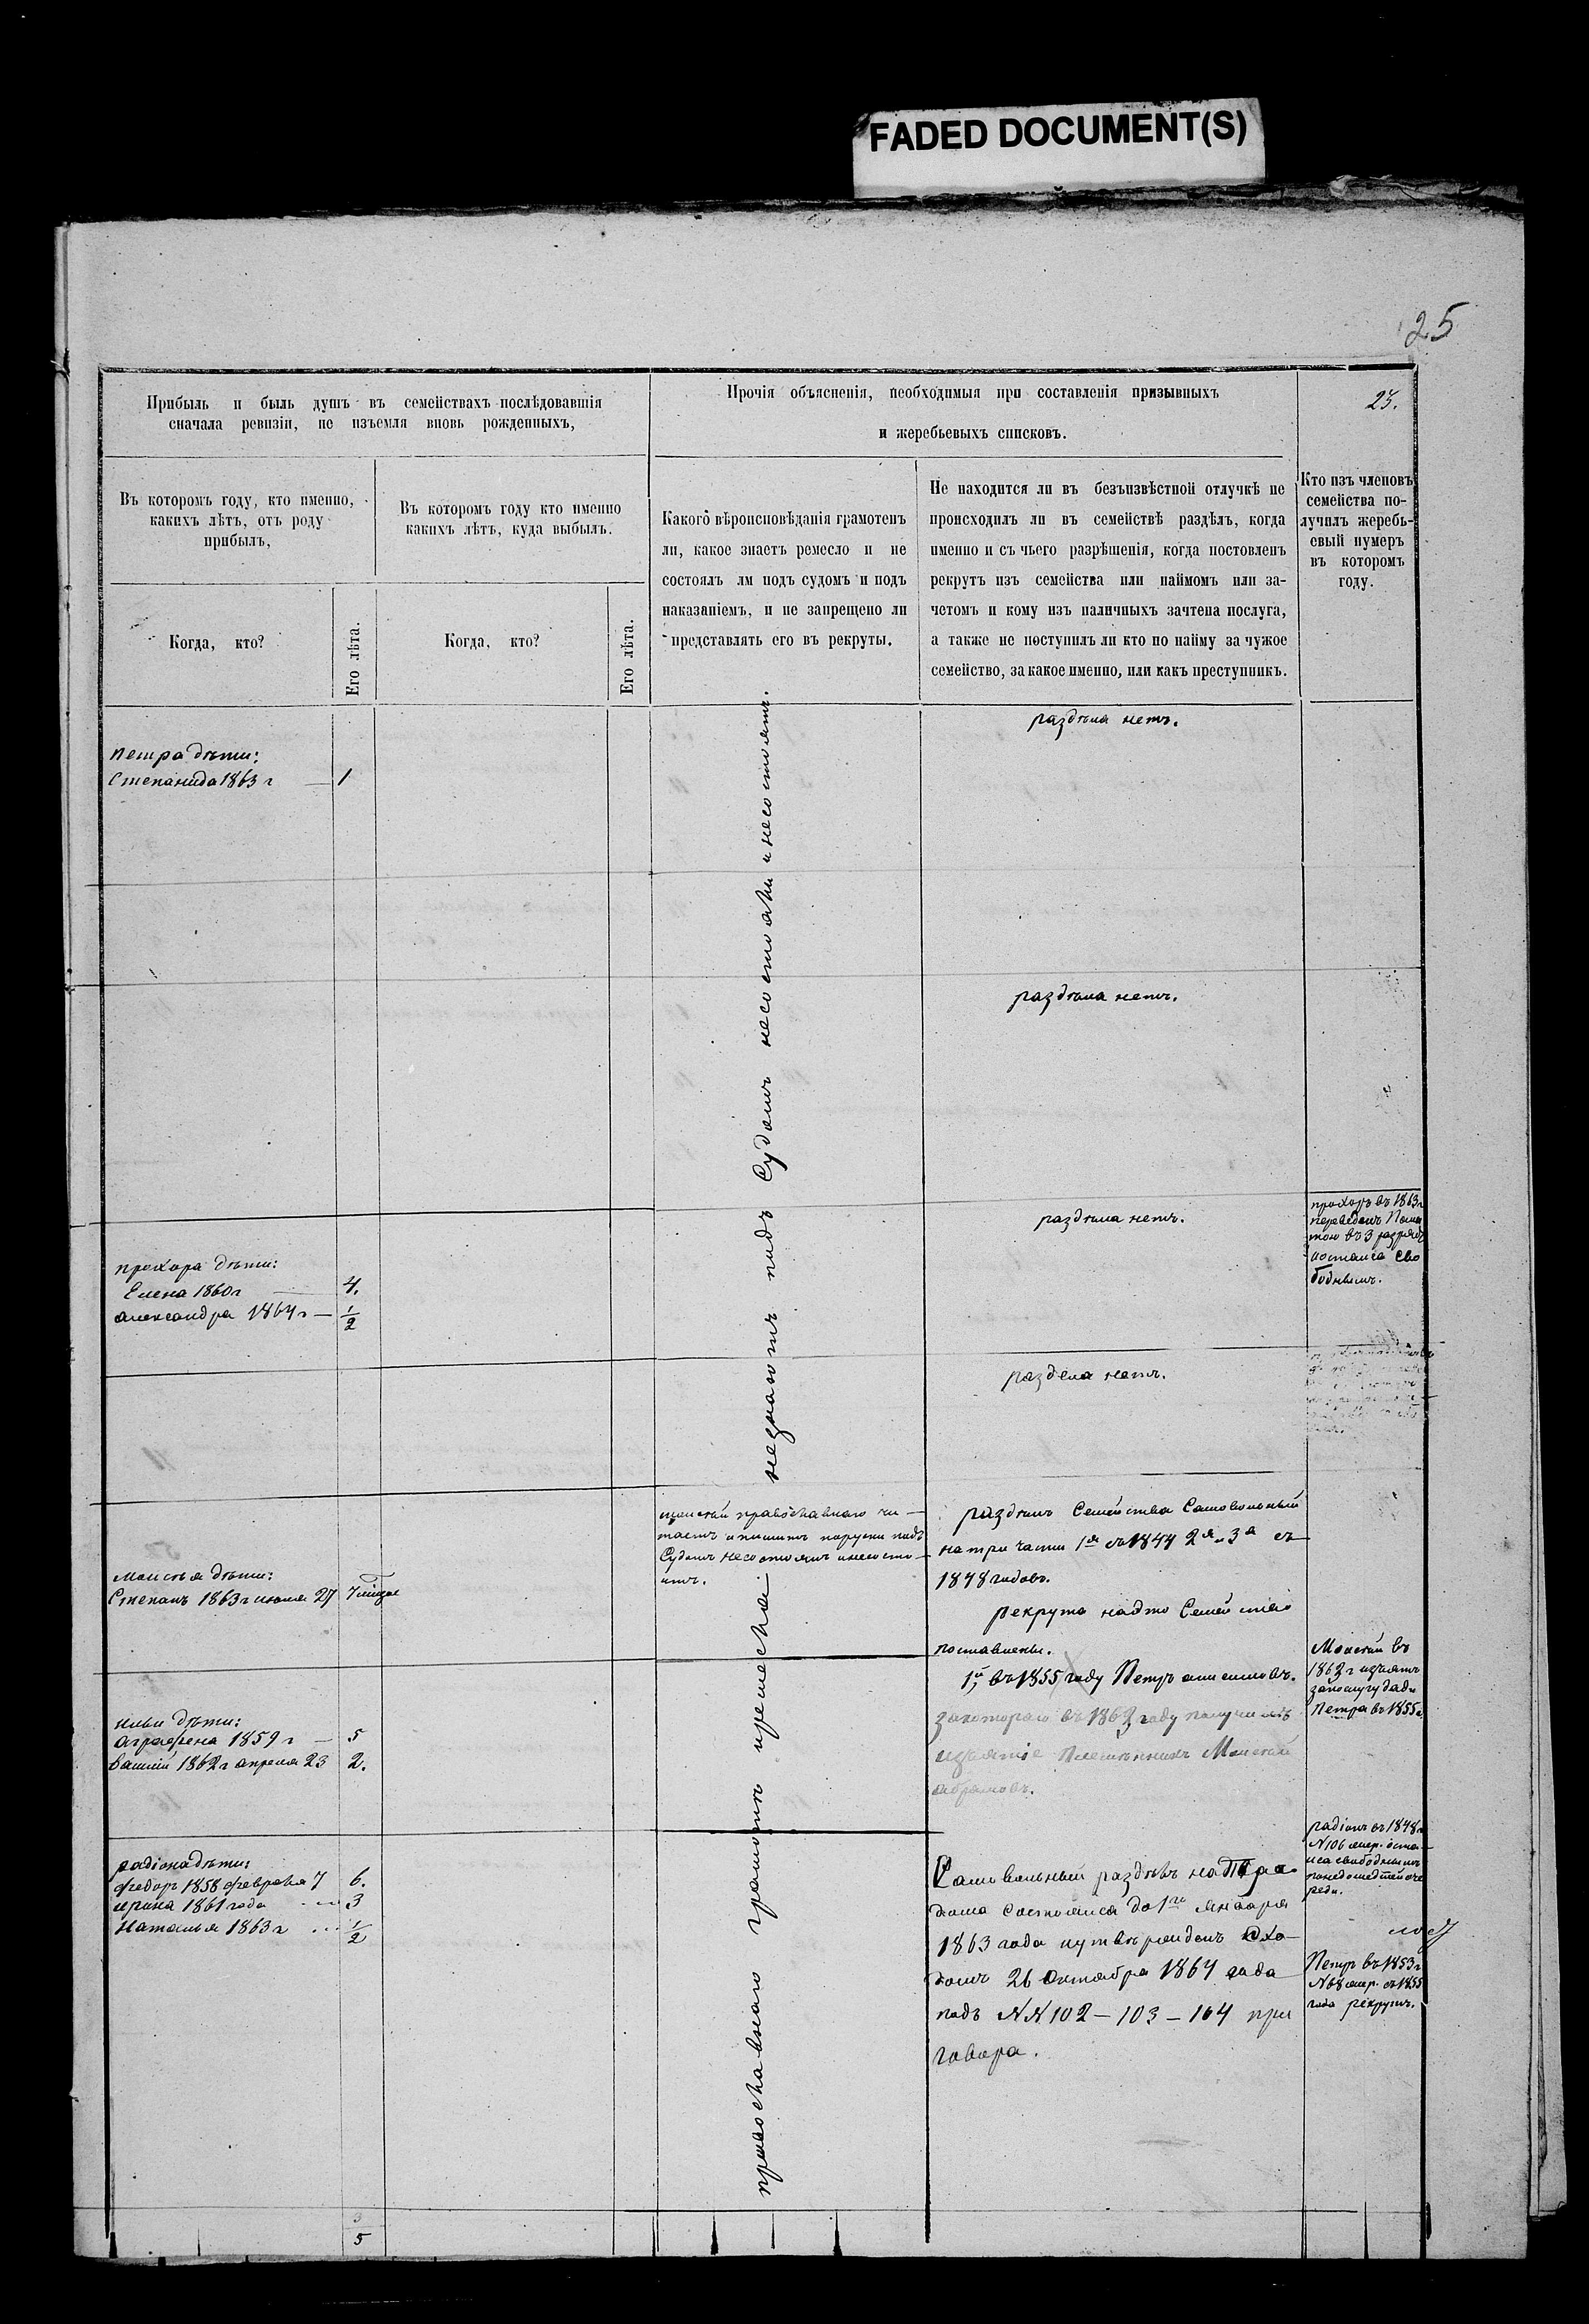 FADED DOCUMENT(S)
25
Прибыль и быль душъ въ семействахъ послѣдовавшія
сначала ревизіи, не изъемля вновь рожденныхъ,
Прочія объясненія, необходимыя при составленія призывныхъ
и жеребьевыхъ списковъ.
25.
Въ которомъ году, кто именно,
какихъ лѣтъ, отъ роду
прибылъ,
Въ которомъ году кто именно
какихъ лѣтъ, куда выбылъ.
Какого вѣроисповѣданія грамотенъ
ли, какое знаетъ ремесло и не
состоялъ лм подъ судомъ и подъ
наказаніемъ, и не запрещено ли
представлять его въ рекруты.
Не находится ли въ безъизвѣстной отлучкѣ не
происходилъ ли въ семействѣ раздѣлъ, когда
именно и съ чьего разрѣшенія, когда постовленъ
рекрутъ изъ семейства или наймомъ или за-
четомъ и кому изъ наличныхъ зачтена послуга,
а также не поступилъ ли кто по найму за чужое
семейство, за какое именно, или какъ преступникъ.
Кто изъ членовъ
семейства по-
лучилъ жеребь-
евый нумеръ
въ которомъ
году.
Когда, кто?
Его лѣта.
Когда, кто?
Его лѣта.
раздѣла нетъ.
петра дѣти:
Степанида 1863 г — 1
раздѣла нетъ.
раздѣла нетъ.
прохоръ въ 1863 г
переведенъ Пала
тою въ 3 разрядъ
иосталса Сво
боднымъ.
прохора дѣти:
Елена 1860 г — 4.
александра 1864 г — 1/2
раздела нетъ.
православнаго грамотѣ ремесла незнаютъ подъ Судомъ несостояли и несостоятъ.
моисей православнаго чи—
таетъ ипишитъ поруски подъ
Судомъ несостоялъ инесосто—
итъ.
раздѣлъ Семейства Самовольный
на три части 1я въ 1844 2я и 3я въ
1848 годовъ.
рекрута надто Семейство
поставлены.
1й, въ 1855 году Петръ
закотораго въ 1863 году получилъ
изъятіе Племѣнникъ Моисей
абрамовъ.
моисея дѣти:
Степанъ 1863 г июля 27
Моисей въ
1863 г изъятъ
запослугу дади
Петра въ 1855 г
ильи дѣти:
аграфена 1859 г — 5
васили 1862 г апреля 23 2.
радіонъ въ 1848 г
N 106 жер. оста—
лса свободнымъ
понедошедшей оче
реди.
радіона дѣти:
федоръ 1858 февраля 7 6.
ирина 1861 года 3
наталья 1863 г 1/2
Самовольный раздѣлъ на
дома Состоялса до 1го Января
1863 года иутвѣржденъ схо—
домъ 26 Октября 1864 года
подъ NN 102 — 103 — 104 при
говора.
Петръ въ 1853 г
N 68 жер. въ 1855
года рекрутъ.
5